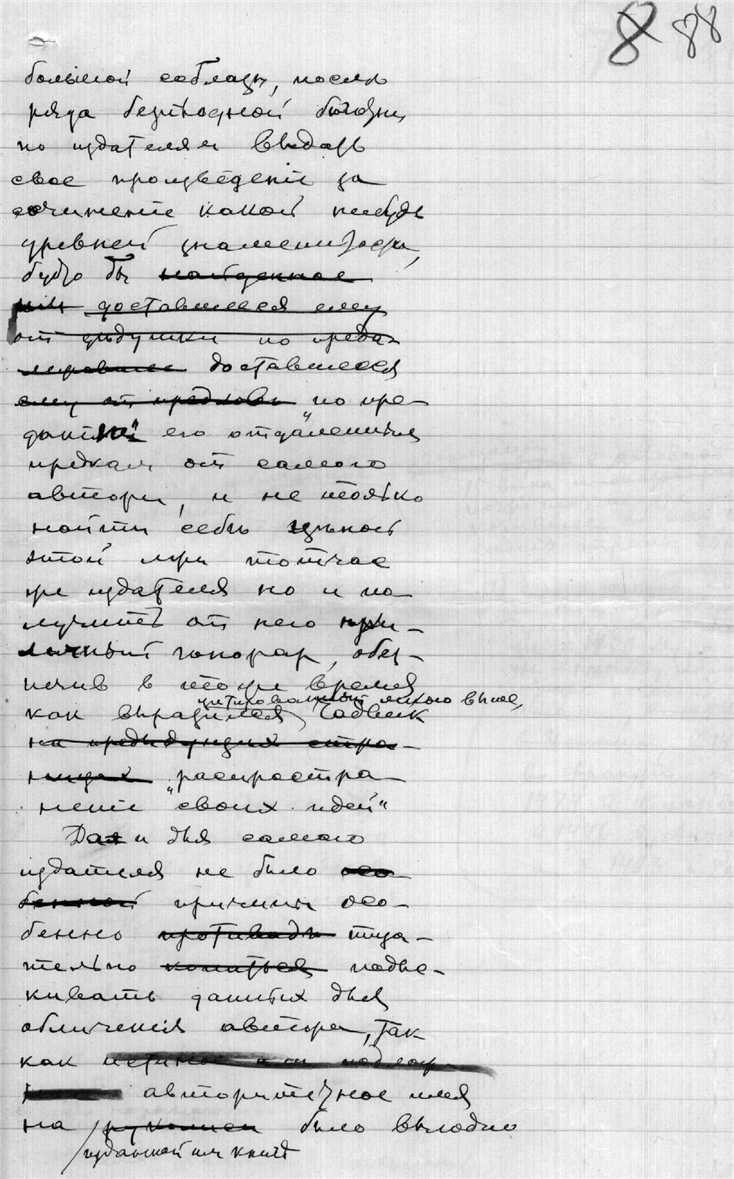 8 88
большой соблазн, после
ряда безплодной беготни
по издателям выдать
свое произведеніе за
сочинение какой нибудь
древней знаменитости,
будто бы найденное
или доставшееся ему
от дѣдушки по преда-
доставшееся
ему от предковъ по пре-
данію его отдаленным
предкам от самого
автора, и не только
найти себѣ
этой мѣри тотчас
же издателя но и по-
лучить от него при-
личный гонорар, обез-
печив в то же время
цитированный много выше,
как выразился Чадвик
на предыдущих стра-
ницах распростра-
нение "своих идей"
Да и для самого
издателя не было осо-
бенной причины осо-
бенно противъ тща-
тельно копаться подъе-
кивать данных для
обличения автора, так
как
авторитетное имя
на рукописи было выгодно
изданной им книге